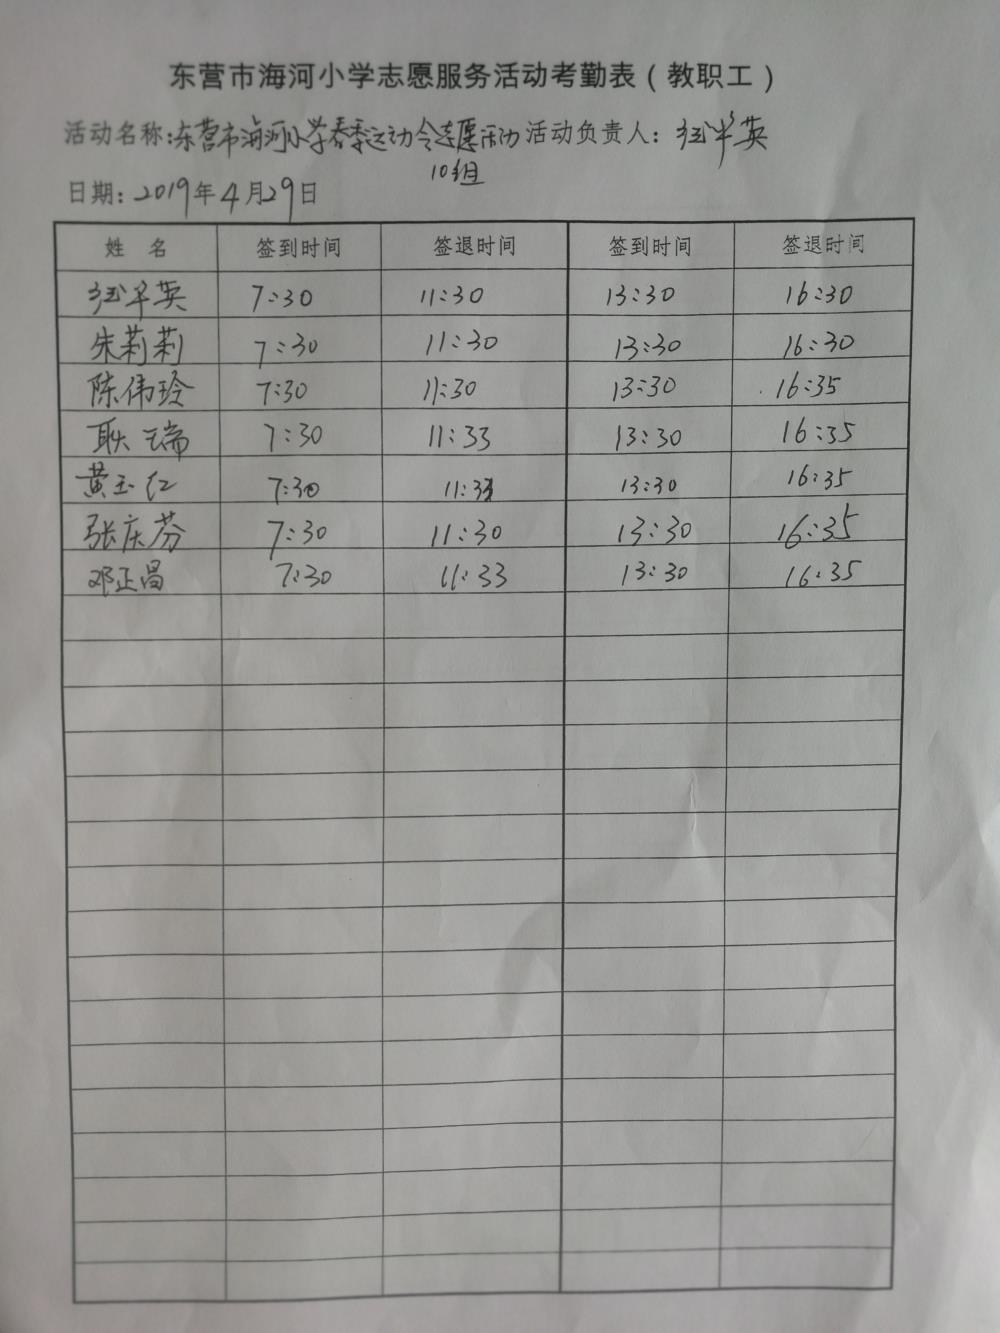 东营市海河小学志愿服务活动考勤表（教职工）
活动名称：东营市海河小学春季运动会志愿活动 活动负责人：英
10组
日期：2019年4月29日
姓 名 签到时间 签退时间 签到时间 签退时间
英 7:30 11:30 13:30 16:30
朱莉莉 7:30 11:30 13:30 16:30
陈伟玲 7:30 11:30 13:30 16:35
耿瑞 7:30 11:33 13:30 16:35
黄玉红 7:30 11:33 13:30 16:35
张庆芬 7:30 11:30 13:30 16:35
邓正昌 7:30 11:33 13:30 16:35